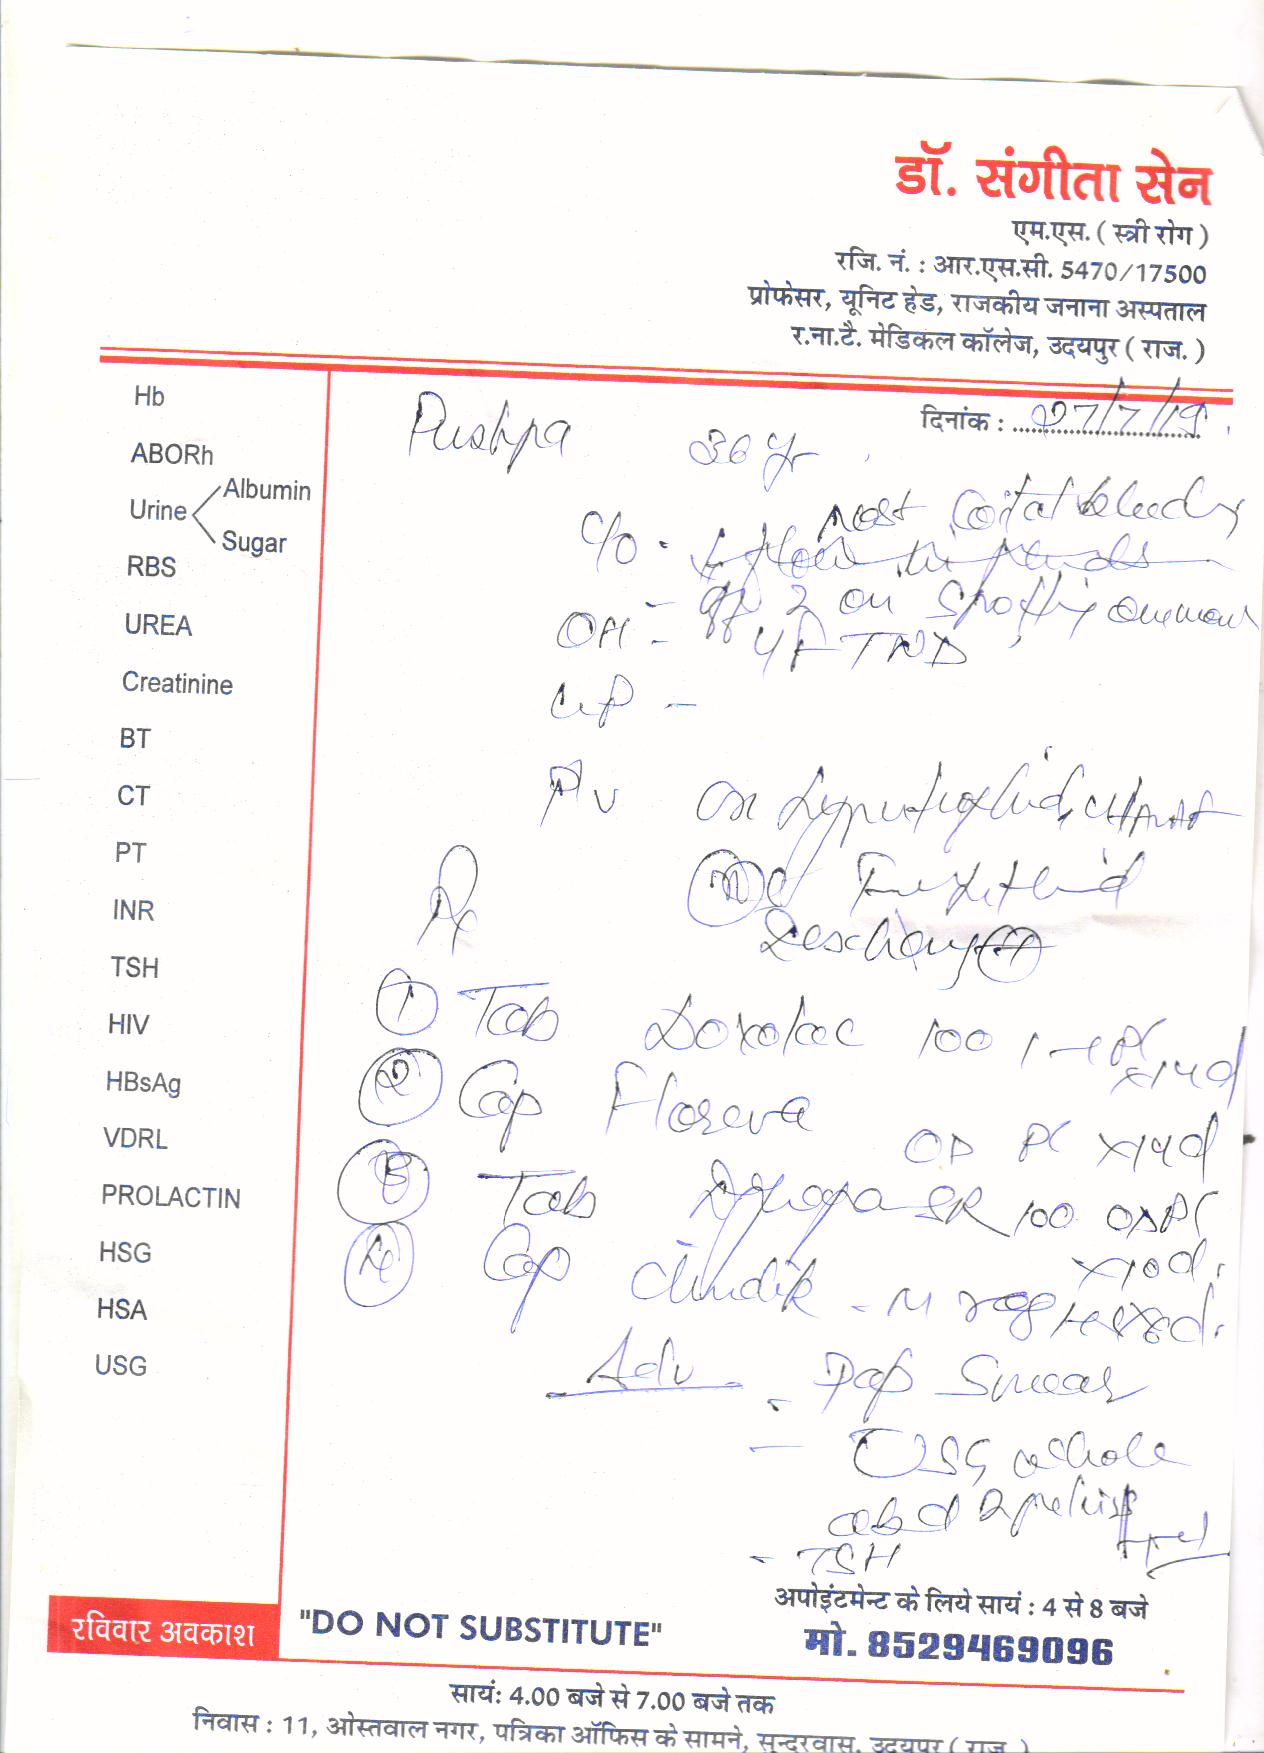 डॉ. संगीता सेन
एम.एस. ( स्त्री रोग )
रजि. नं. : आर.एस.सी. 5470/17500
प्रोफेसर, यूनिट हेड, राजकीय जनाना अस्पताल
र.ना.टै. मेडिकल कॉलेज, उदयपुर ( राज. )
Hb
ABORh
Urine
Albumin
Sugar
RBS
UREA
Creatinine
BT
CT
PT
INR
TSH
HIV
HBsAg
VDRL
PROLACTIN
HSG
HSA
USG
दिनांक : 27/7/19
Pushpa 36 yr
Post Coital bleeding
C/o -
on spotting
OH - 4 FTND
LMP -
P/V Cx hypertrophied,
Rx
Discharge
1 Tab 100 x14d
2 Cap Floreva OD PC x14d
3 Tab SR 100 OD PC
x10d.
4 Cap Clindik - M
Adv - Pap Smear
- USG whole
abd & pelvis
- TSH
रविवार अवकाश
"DO NOT SUBSTITUTE"
अपोइंटमेन्ट के लिये सायं : 4 से 8 बजे
मो. 8529469096
सायं: 4.00 बजे से 7.00 बजे तक
निवास : 11, ओस्तवाल नगर, पत्रिका ऑफिस के सामने, सुन्दरवास, उदयपुर ( राज. )